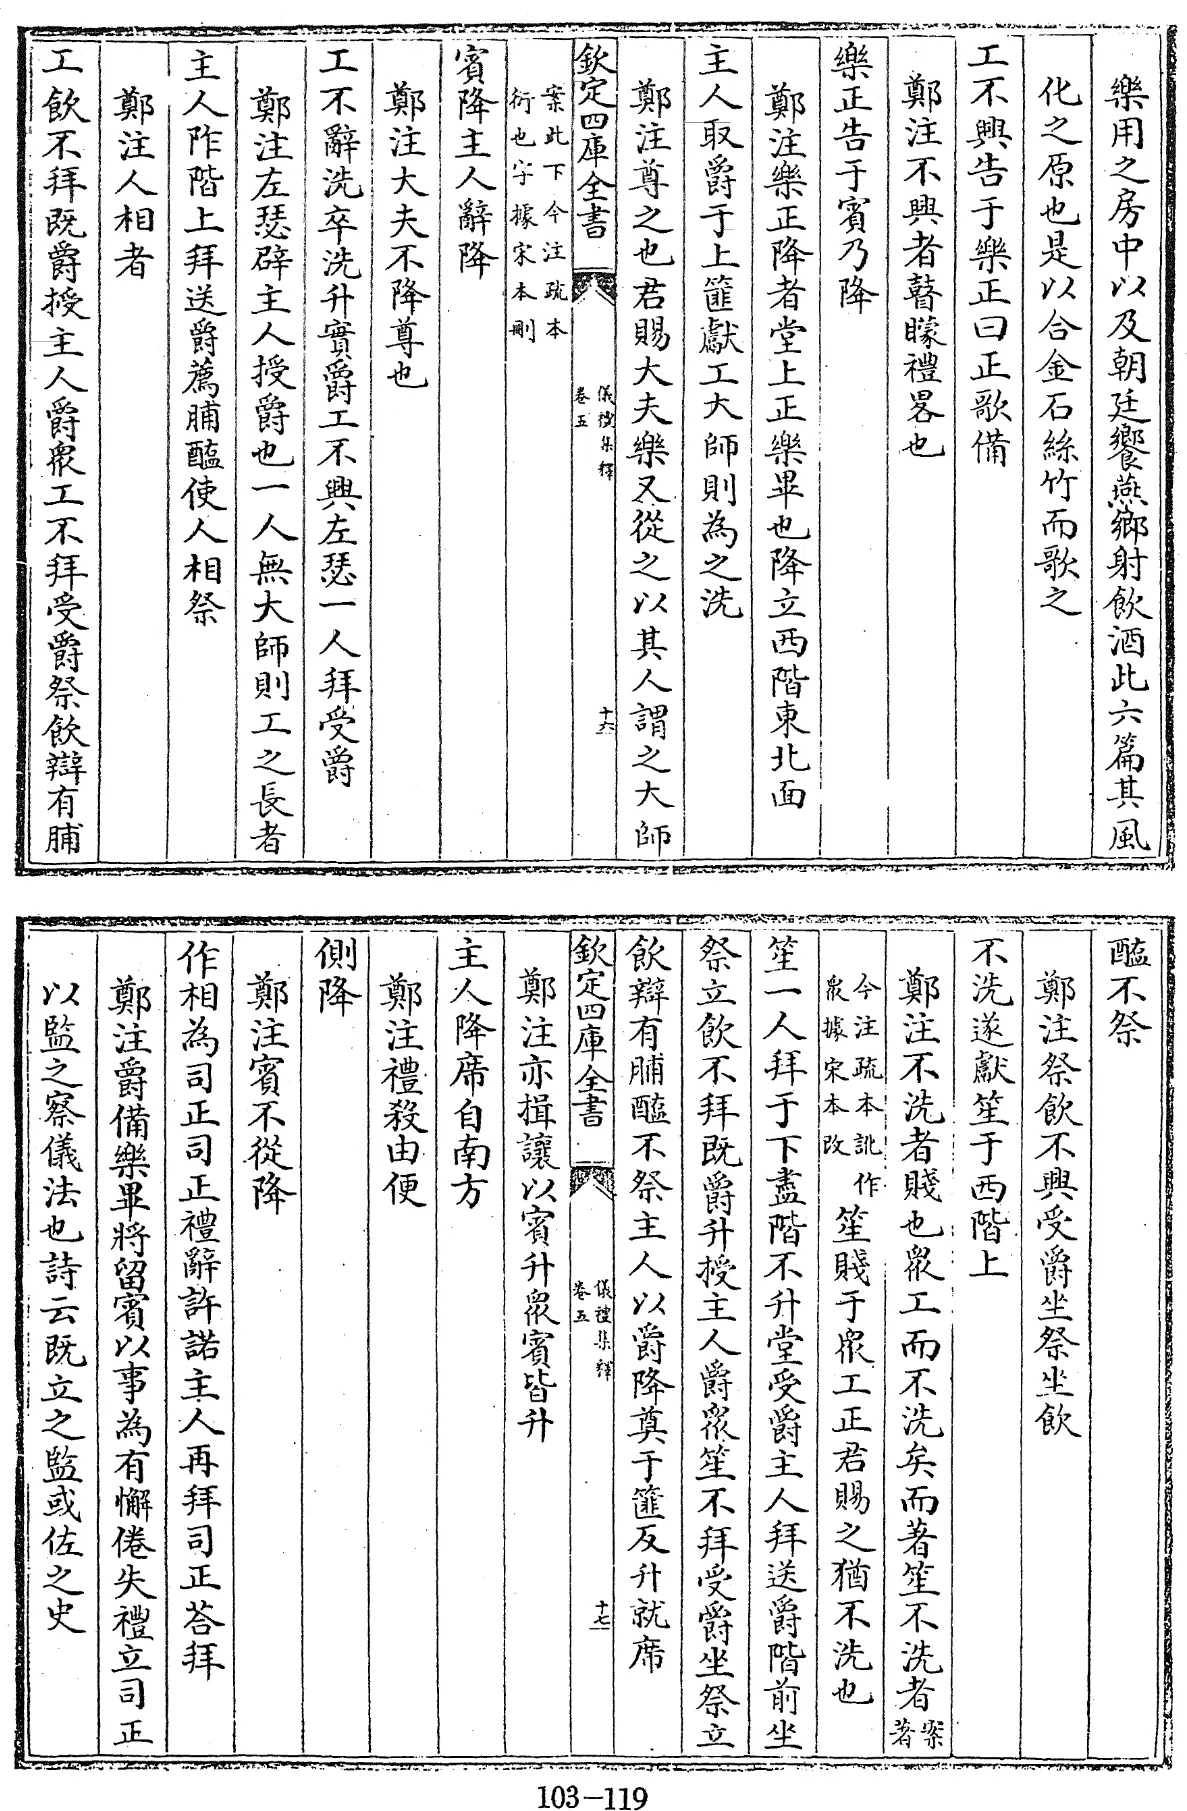 樂用之房中以及朝廷饗燕鄉射飲酒此六篇其風
化之原也是以合金石絲竹而歌之
工不興告于樂正曰正歌備
鄭注不興者瞽矇禮畧也
樂正告于賓乃降
鄭注樂正降者堂上正樂畢也降立西階東北面
主人取爵于上篚獻工大師則為之洗
鄭注尊之也君賜大夫樂又從之以其人謂之大師
欽定四庫全書
儀禮集釋
卷五
十六
案此下今注疏本
衍也字據宋本刪
賓降主人辭降
鄭注大夫不降尊也
工不辭洗卒洗升實爵工不興左瑟一人拜受爵
鄭注左瑟辟主人授爵也一人無大師則工之長者
主人阼階上拜送爵薦脯醢使人相祭
鄭注人相者
工飲不拜既爵授主人爵衆工不拜受爵祭飲辯有脯
醢不祭
鄭注祭飲不興受爵坐祭坐飲
不洗遂獻笙于西階上
鄭注不洗者賤也衆工而不洗矣而著笙不洗者案著
今注疏本訛作
衆據宋本改
笙賤于衆工正君賜之猶不洗也
笙一人拜于下盡階不升堂受爵主人拜送爵階前坐
祭立飲不拜既爵升授主人爵衆笙不拜受爵坐祭立
飲辯有脯醢不祭主人以爵降奠于篚反升就席
欽定四庫全書
儀禮集釋
卷五
十七
鄭注亦揖讓以賓升衆賓皆升
主人降席自南方
鄭注禮殺由便
側降
鄭注賓不從降
作相為司正司正禮辭許諾主人再拜司正荅拜
鄭注爵備樂畢將留賓以事為有懈倦失禮立司正
以監之察儀法也詩云既立之監或佐之史
103-119